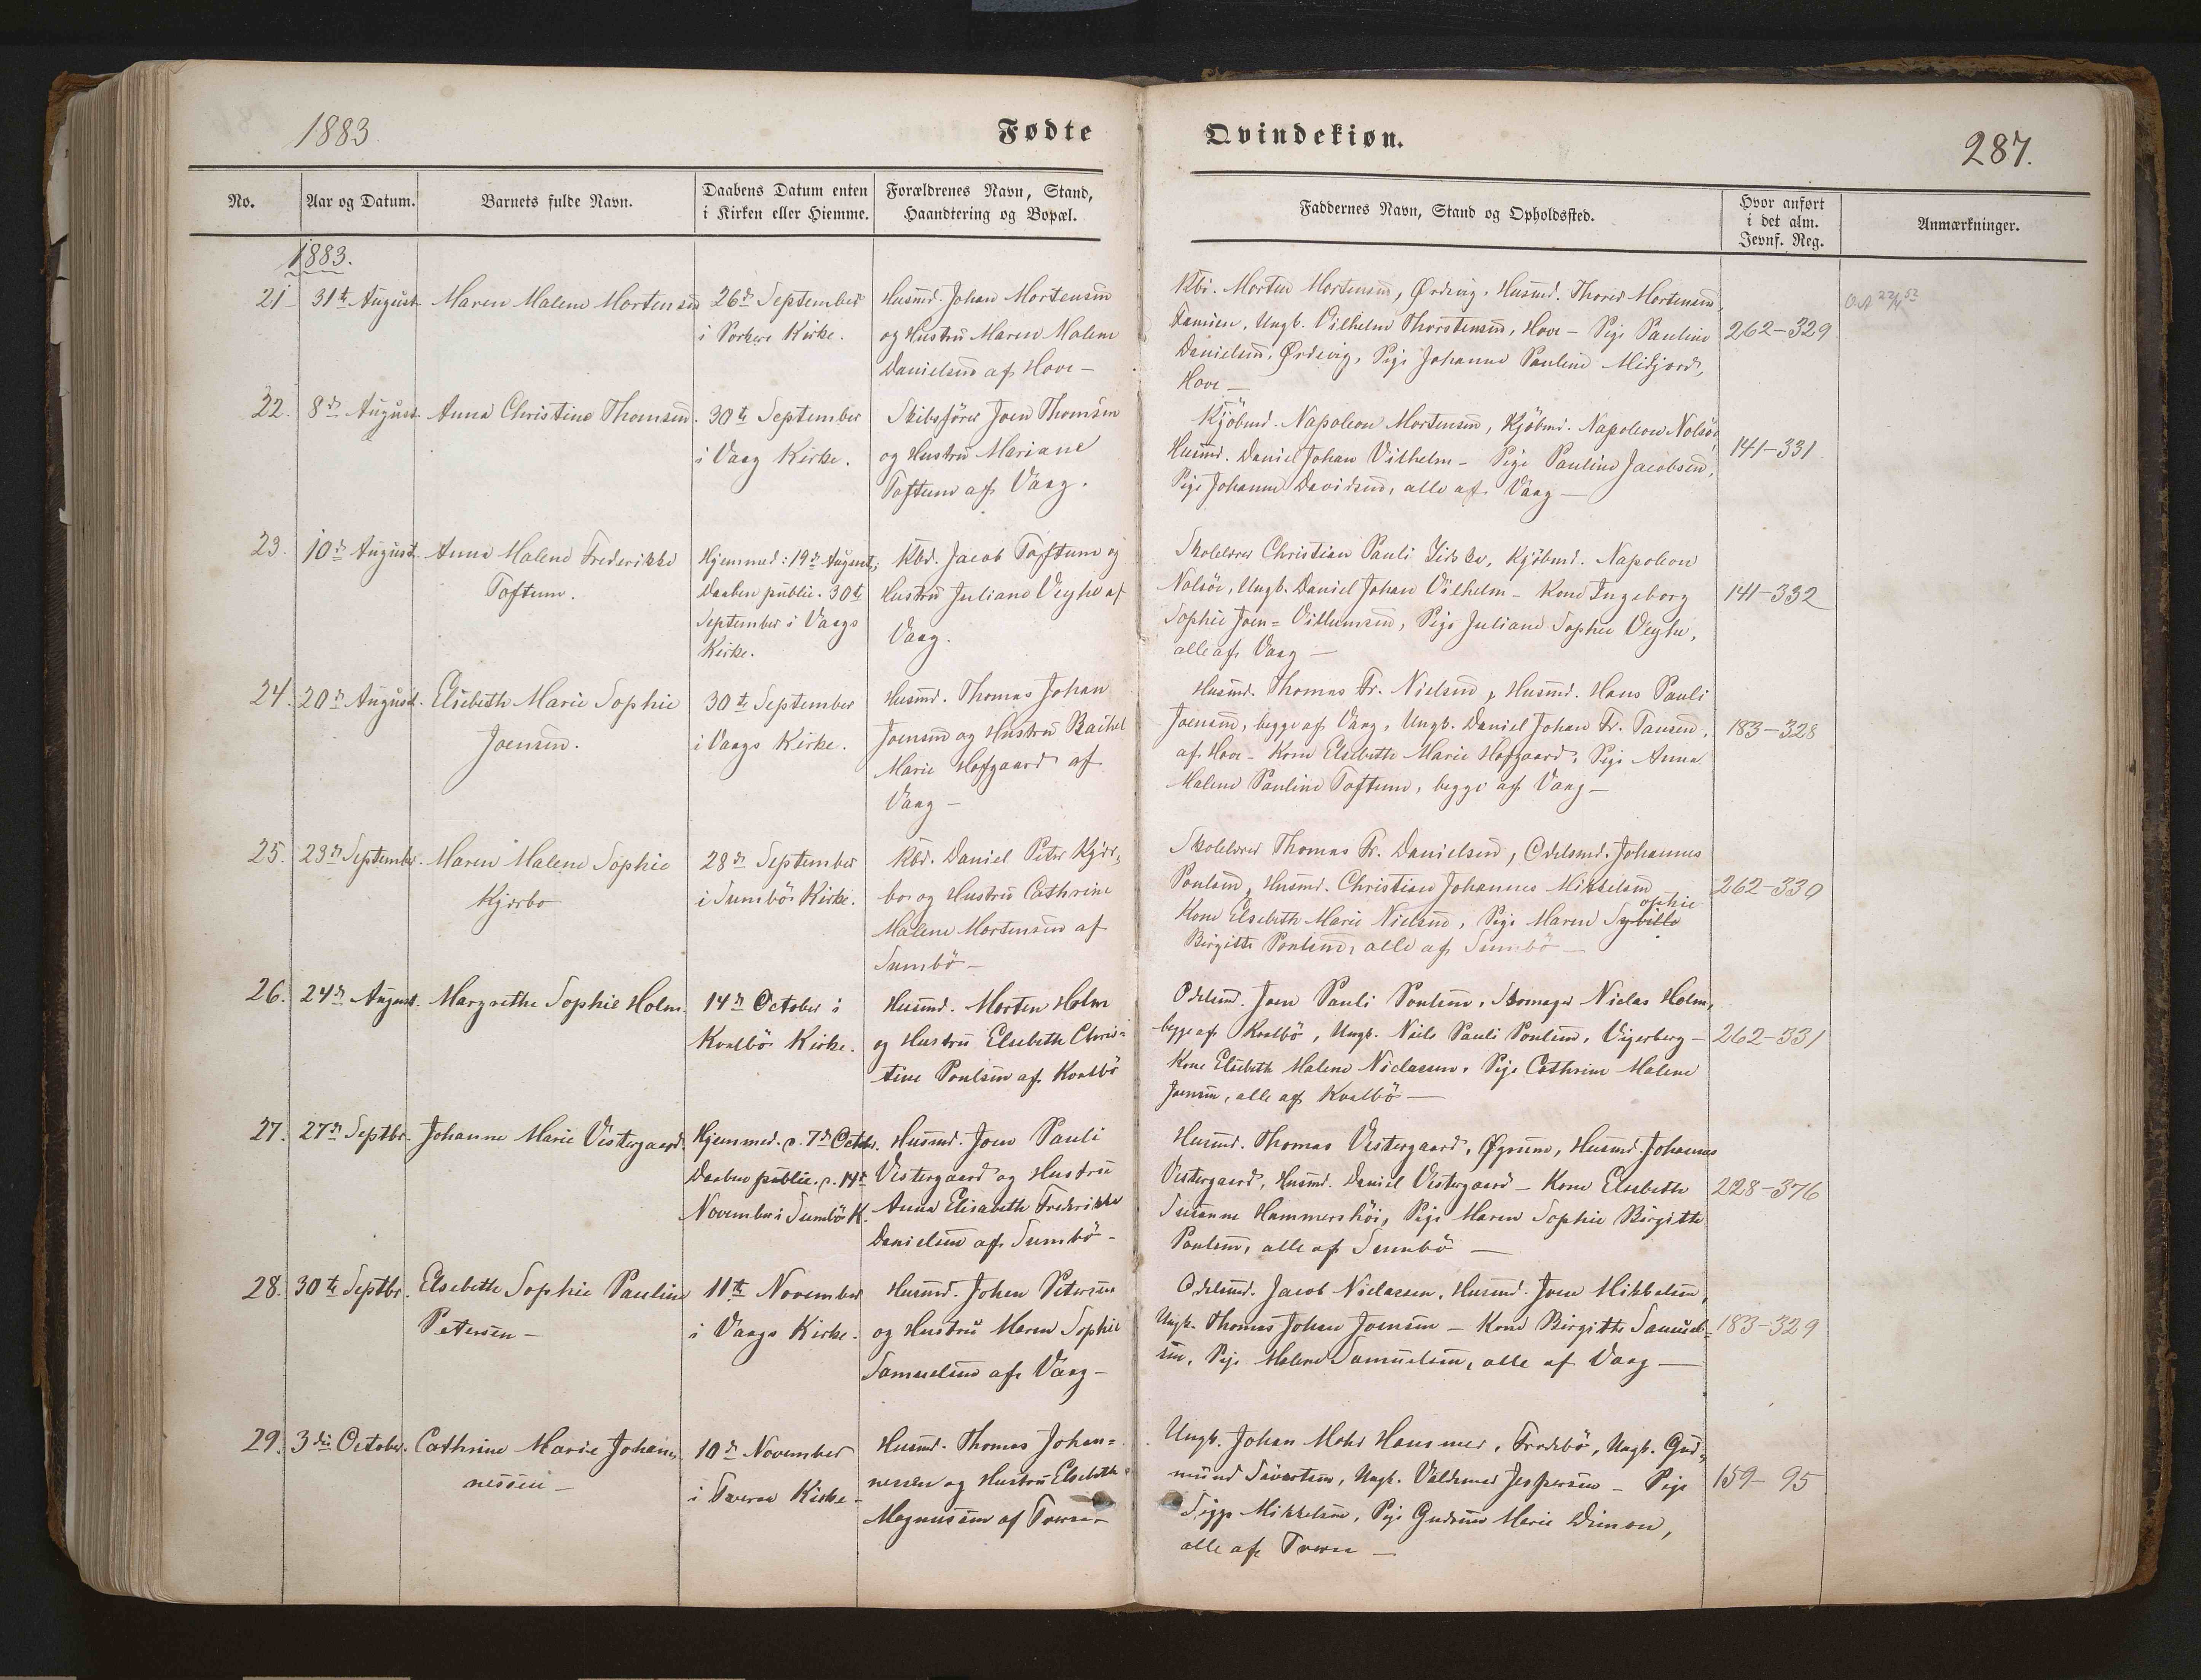 1883.
Fødte
Qvindekiøn.
287.
No.
Aar og Datum.
Barnets fulde Navn.
Daabens Datum enten
i Kirken eller Hiemme.
Forældrenes Navn, Stand,
Haandtering og Bopæl.
Faddernes Navn, Stand og Opholdssted.
Hvor anført
i det alm.
Jevnf. Reg.
Anmærkninger.
1883.
21
31te August
Maren Malene Mortensen
26de September
i Porkere Kirke.
Husmd. Johan Mortensen
og Hustru Maren Malene
Danielsen af Hove –
Kbr. Morten Mortensen, Ørdevig, Husmd. Thorer Mortensen,
Famien, Ungk. Vilhelm Thorstensen, Hove – Pige Pauline
Danielsen, Ørdevig, Pige Johanne Pauline Midjord,
Hove –
262–329
22.
8de August.
Anna Christine Thomsen.
30te September
i Vaag Kirke.
Skibsfører Joen Thomsen
og Hustru Mariane
Toftum af Vaag.
Kjöbmd. Napoleon Mortensen, Kjöbmd. Napoleon Nolsöe
Husmd. Daniel Johan Vilhelm – Pige Pauline Jacobsen,
Pige Johanne Davidsen, alle af Vaag –
141–331
23.
10de August
Anna Malene Frederikke
Toftum.
Hjemmed: 19de August;
Daaben public. 30te
September i Vaags
Kirke.
Kbd. Jacob Toftum og
Hustru Juliane Veyhe af
Vaag.
Skolelærer Christian Pauli Kjöbmd. Napoleon
Nolsöe, Ungk. Daniel Johan Vilhelm – Kone Ingeborg
Sophie Joen= Villumsen, Pige Juliane Sophie Veyhe,
alle af Vaag –
141–332
24.
20de August.
Elsebeth Marie Sophie
Joensen.
30te September
i Vaags Kirke.
Husmd. Thomas Johan
Joensen og Hustru Rachel
Marie Hofgaard af
Vaag –
Husmd. Thomas Fr. Nielsen, Husmd. Hans Pauli
Joensen, begge af Vaag, Ungk. Daniel Johan Fr. Tausen,
af Hove – Kone Elsebeth Marie Hofgaard, Pige Anna
Malene Pauline Toftum, begge af Vaag –
183–328
25.
23de September.
Maren Malene Sophie
Kjærbo
28de September
i Sumbö Kirke.
Kbd. Daniel Peter Kjær=
bo og Hustru Cathrine
Malene Mortensen af
Sumbö –
Skolelærer Thomas Fr. Danielsen, Odelsmd. Johannes
Poulsen, Husmd. Christian Johannes Mikkelsen
ophie
Kone Elsebeth Marie Nielsen, Pige Maren Sybille
Birgitte Poulsen, alle af Sumbö –
262–330
26.
24de August.
Margrethe Sophie Holm.
14de October i
Kvalbö Kirke.
Husmd. Morten Holm
og Hustru Elsebeth Chris=
tine Poulsen af Kvalbö
Odelsmd. Joen Pauli Poulsen, Skomager Niclas Holm,
begge af Kvalbö, Ungk. Niels Pauli Poulsen, Vigerberg –
Kone Elsebeth Malene Niclassen, Pige Cathrine Malene
Joensen, alle af Kvalbö –
262–331
27.
27de Septbr.
Johanne Marie Vestergaard.
Hjemmed. d. 7de Octbr.
Daaben public. d. 14de
November i Sumbö K.
Husmd. Joen Pauli
Vestergaard og Hustru
Anna Elisabeth Frederikke
Danielsen af Sumbö –
Husmd. Thomas Vestergaard, Husmd. Johannes
Vestergaard, Husmd. Daniel Vestergaard – Kone Elsebeth
Susanne Hammershöi, Pige Maren Sophie Birgitte
Poulsen, alle af Sumbö –
228–376
28.
30te Septbr.
Elsebeth Sophie Pauline
Petersen –
11te November
i Vaags Kirke.
Husmd. Johan Petersen
og Hustru Maren Sophie
Samuelsen af Vaag –
Odelsmd. Jacob Niclassen, Husmd. Joen Mikkelsen,
Ungk. Thomas Johan Joensen – Kone Birgitte Samuel=
sen, Pige Malene Samuelsen, alle af Vaag –
183–329
29.
3die October.
Cathrine Marie Johan=
nessen –
10de November
i Tveraa Kirke –
Husmd. Thomas Johan=
nessen og Hustru Elsebeth
Magnussen af Tveraa
Ungk. Johan Mohr Hansmer, Frodebö, Ungk. Gud=
mund Sivertsen, Ungk. Valdemar Jespersen – Pige
Sigga Mikkelsen, Pige Gudrun Marie Dimon,
alle af Tveraa –
159–95